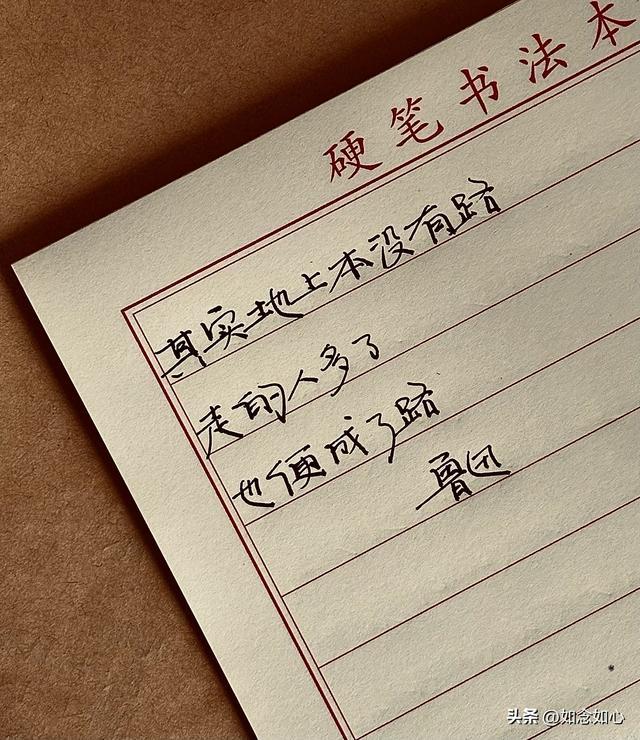 硬笔书法本
其实地上本没有路
走的人多了
也便成了路
鲁迅
头条 @如念如心